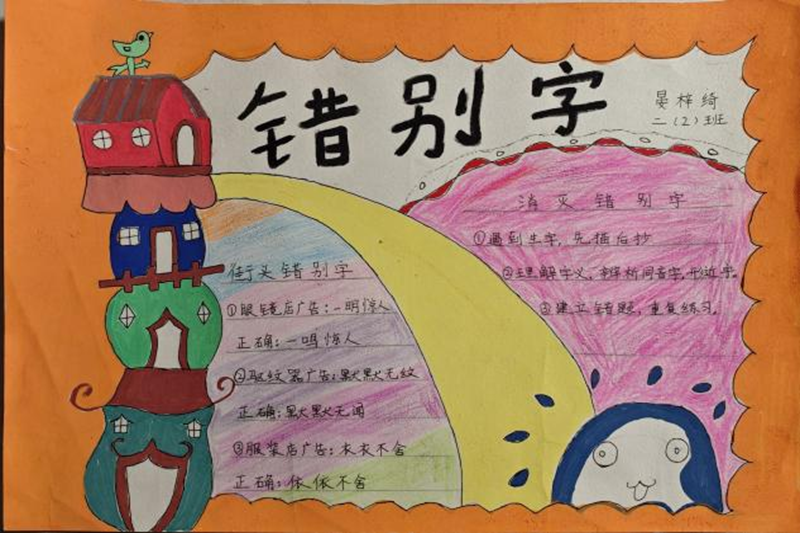 错别字
晏梓绮
二(2)班
街头错别字
①眼镜店广告:一明惊人
正确:一鸣惊人
②驱蚊器广告:默默无蚊
正确:默默无闻
③服装店广告:衣衣不舍
正确:依依不舍
消灭错别字
①遇到生字,先描后抄
②理解字义,辨析同音字,形近字。
③建立错题,重复练习。